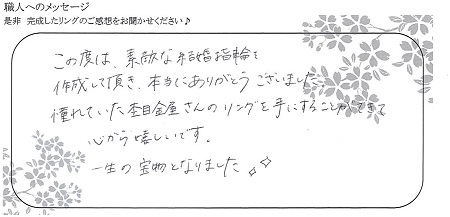 職人へのメッセージ
是非 完成したリングのご感想をお聞かせください♪
この度は、素敵な結婚指輪を
作成して頂き、本当にありがとうございました。
憧れていた杢目金屋さんのリングを手にすることができて
心から嬉しいです。
一生の宝物となりました